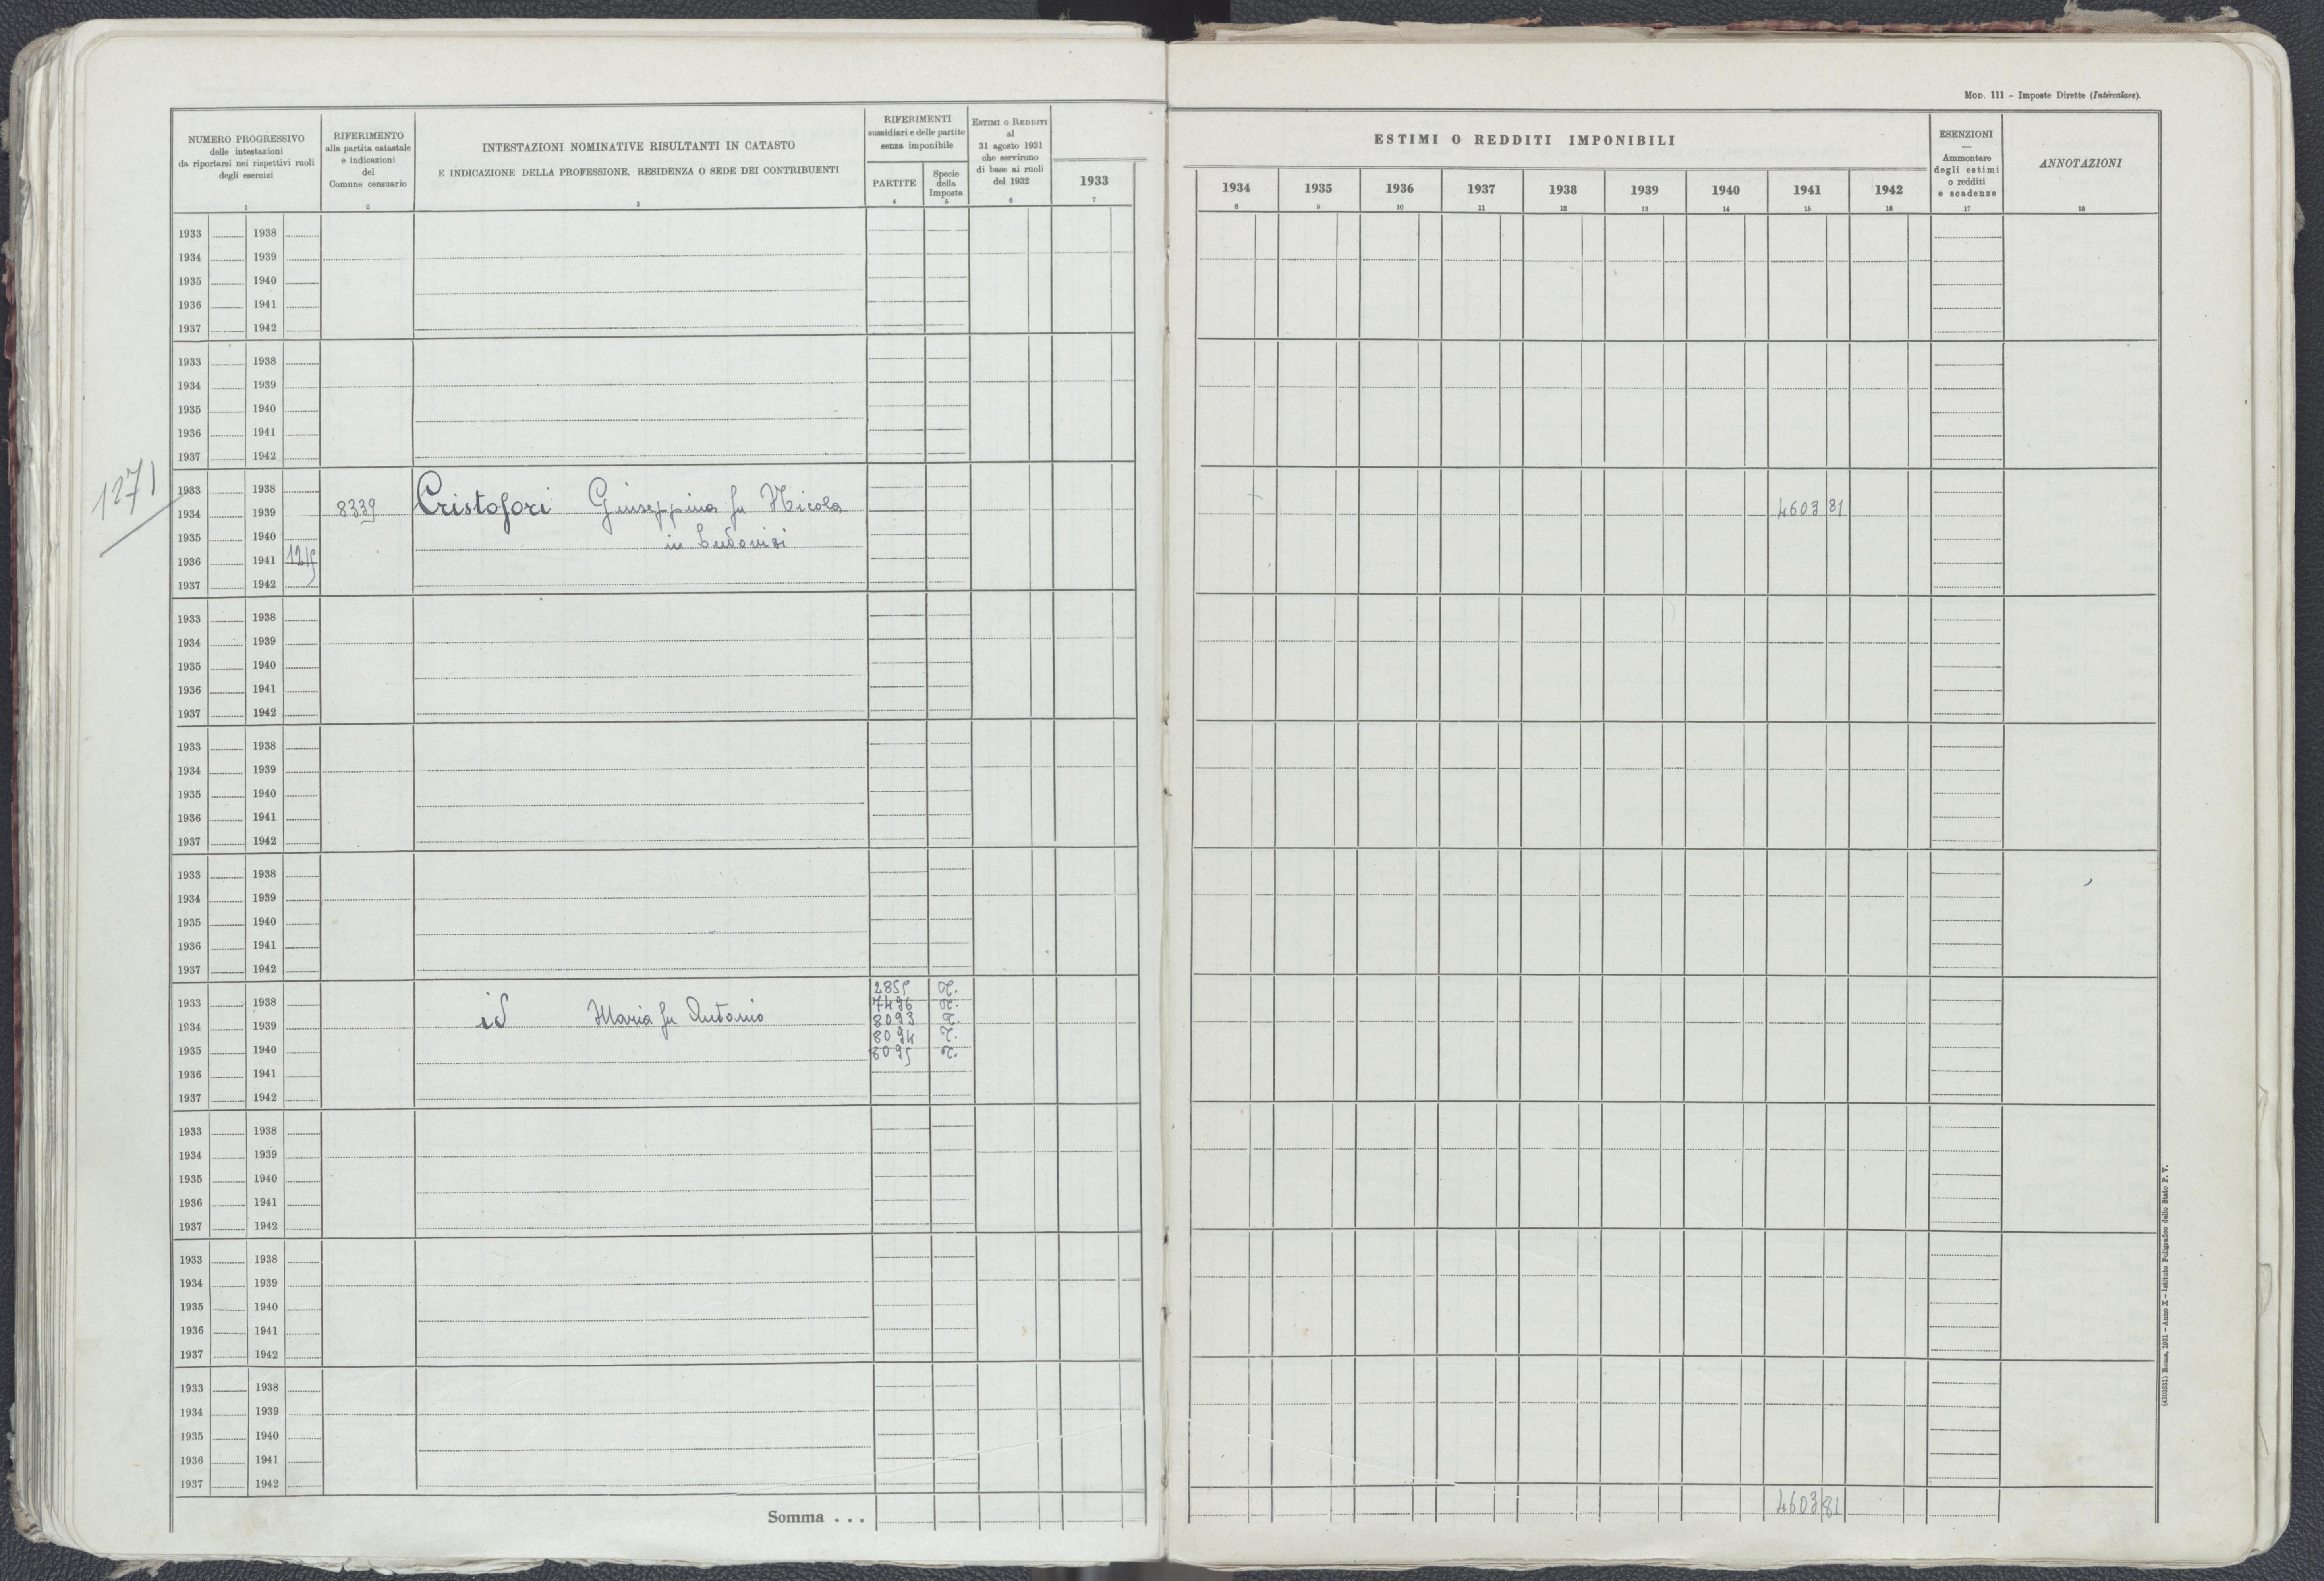 MOD. 111 – Imposte Dirette (Intercalare).
NUMERO PROGRESSIVO
delle intestazioni
da riportarsi nei rispettivi ruoli
degli esercizi
1
RIFERIMENTO
alla partita catastale
e indicazioni
del
Comune censuario
2
INTESTAZIONI NOMINATIVE RISULTANTI IN CATASTO
E INDICAZIONE DELLA PROFESSIONE, RESIDENZA O SEDE DEI CONTRIBUENTI
3
RIFERIMENTI
sussidiari e delle partite
senza imponibile
PARTITE
4
Specie
della
Imposta
5
ESTIMI O REDDITI
al
31 agosto 1931
che servirono
di base ai ruoli
del 1932
6
1933
7
ESTIMI O REDDITI IMPONIBILI
1934 1935 1936 1937 1938 1939 1940 1941 1942
8 9 10 11 12 13 14 15 16
ESENZIONI
—
Ammontare
degli estimi
o redditi
e scadenze
17
ANNOTAZIONI
18
1933 1938
1934 1939
1935 1940
1936 1941
1937 1942
1933 1938
1934 1939
1935 1940
1936 1941
1937 1942
1271
1933 1938
1934 1939 8339 Cristofori Giuseppina fu Nicola 4603 81
1935 1940 in Ludovisi
1936 1941 1215
1937 1942
1933 1938
1934 1939
1935 1940
1936 1941
1937 1942
1933 1938
1934 1939
1935 1940
1936 1941
1937 1942
1933 1938
1934 1939
1935 1940
1936 1941
1937 1942
2855 T.
1933 1938 7496 T.
1934 1939 id Maria fu Antonio 8093 T.
8094 T.
1935 1940 8095 T.
1936 1941
1937 1942
1933 1938
1934 1939
1935 1940
1936 1941
1937 1942
1933 1938
1934 1939
1935 1940
1936 1941
1937 1942
1933 1938
1934 1939
1935 1940
1936 1941
1937 1942
Somma . . . 4603 81
(4103631) Roma, 1931 – Anno X – Istituto Poligrafico dello Stato P. V.